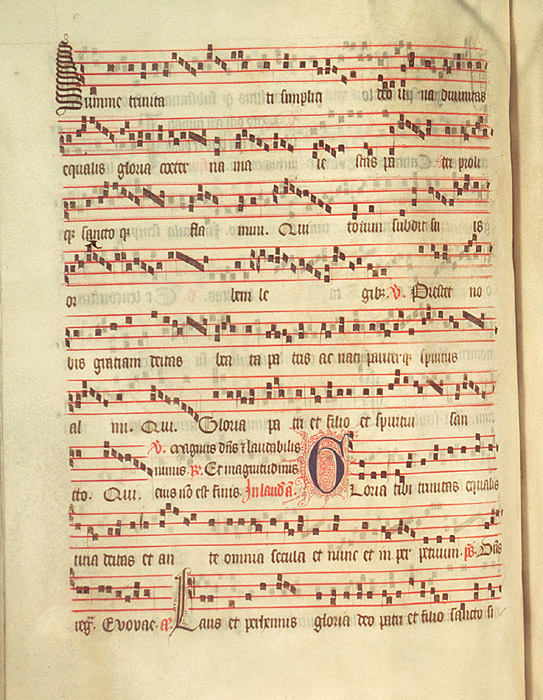 Summe trinita ti simplici deo una divinitas
equalis gloria coeter na ma ie stas pa tri proli
q̃ sancto q̃ fla mini. Qui totum subdit su is
or bem le gibꝫ. V. Prestet no
bis gratiam deitas bea ta pa tris ac nati pariterq̃ spiritus
al mi. Qui. Gloria pa tri et filio et spiritui san
V. Magnus dñs ⁊ laudabilis
nimis. R. Et magnitudinis
cto. Qui. eius nō est finis. In laud̃. a. Gloria tibi trinitas equalis
una deitas et an te omnia secula et nunc et in per petuum. ps. Dñs
reg̃. Evovae. a. Laus et perhennis gloria deo patri et filio sancto si